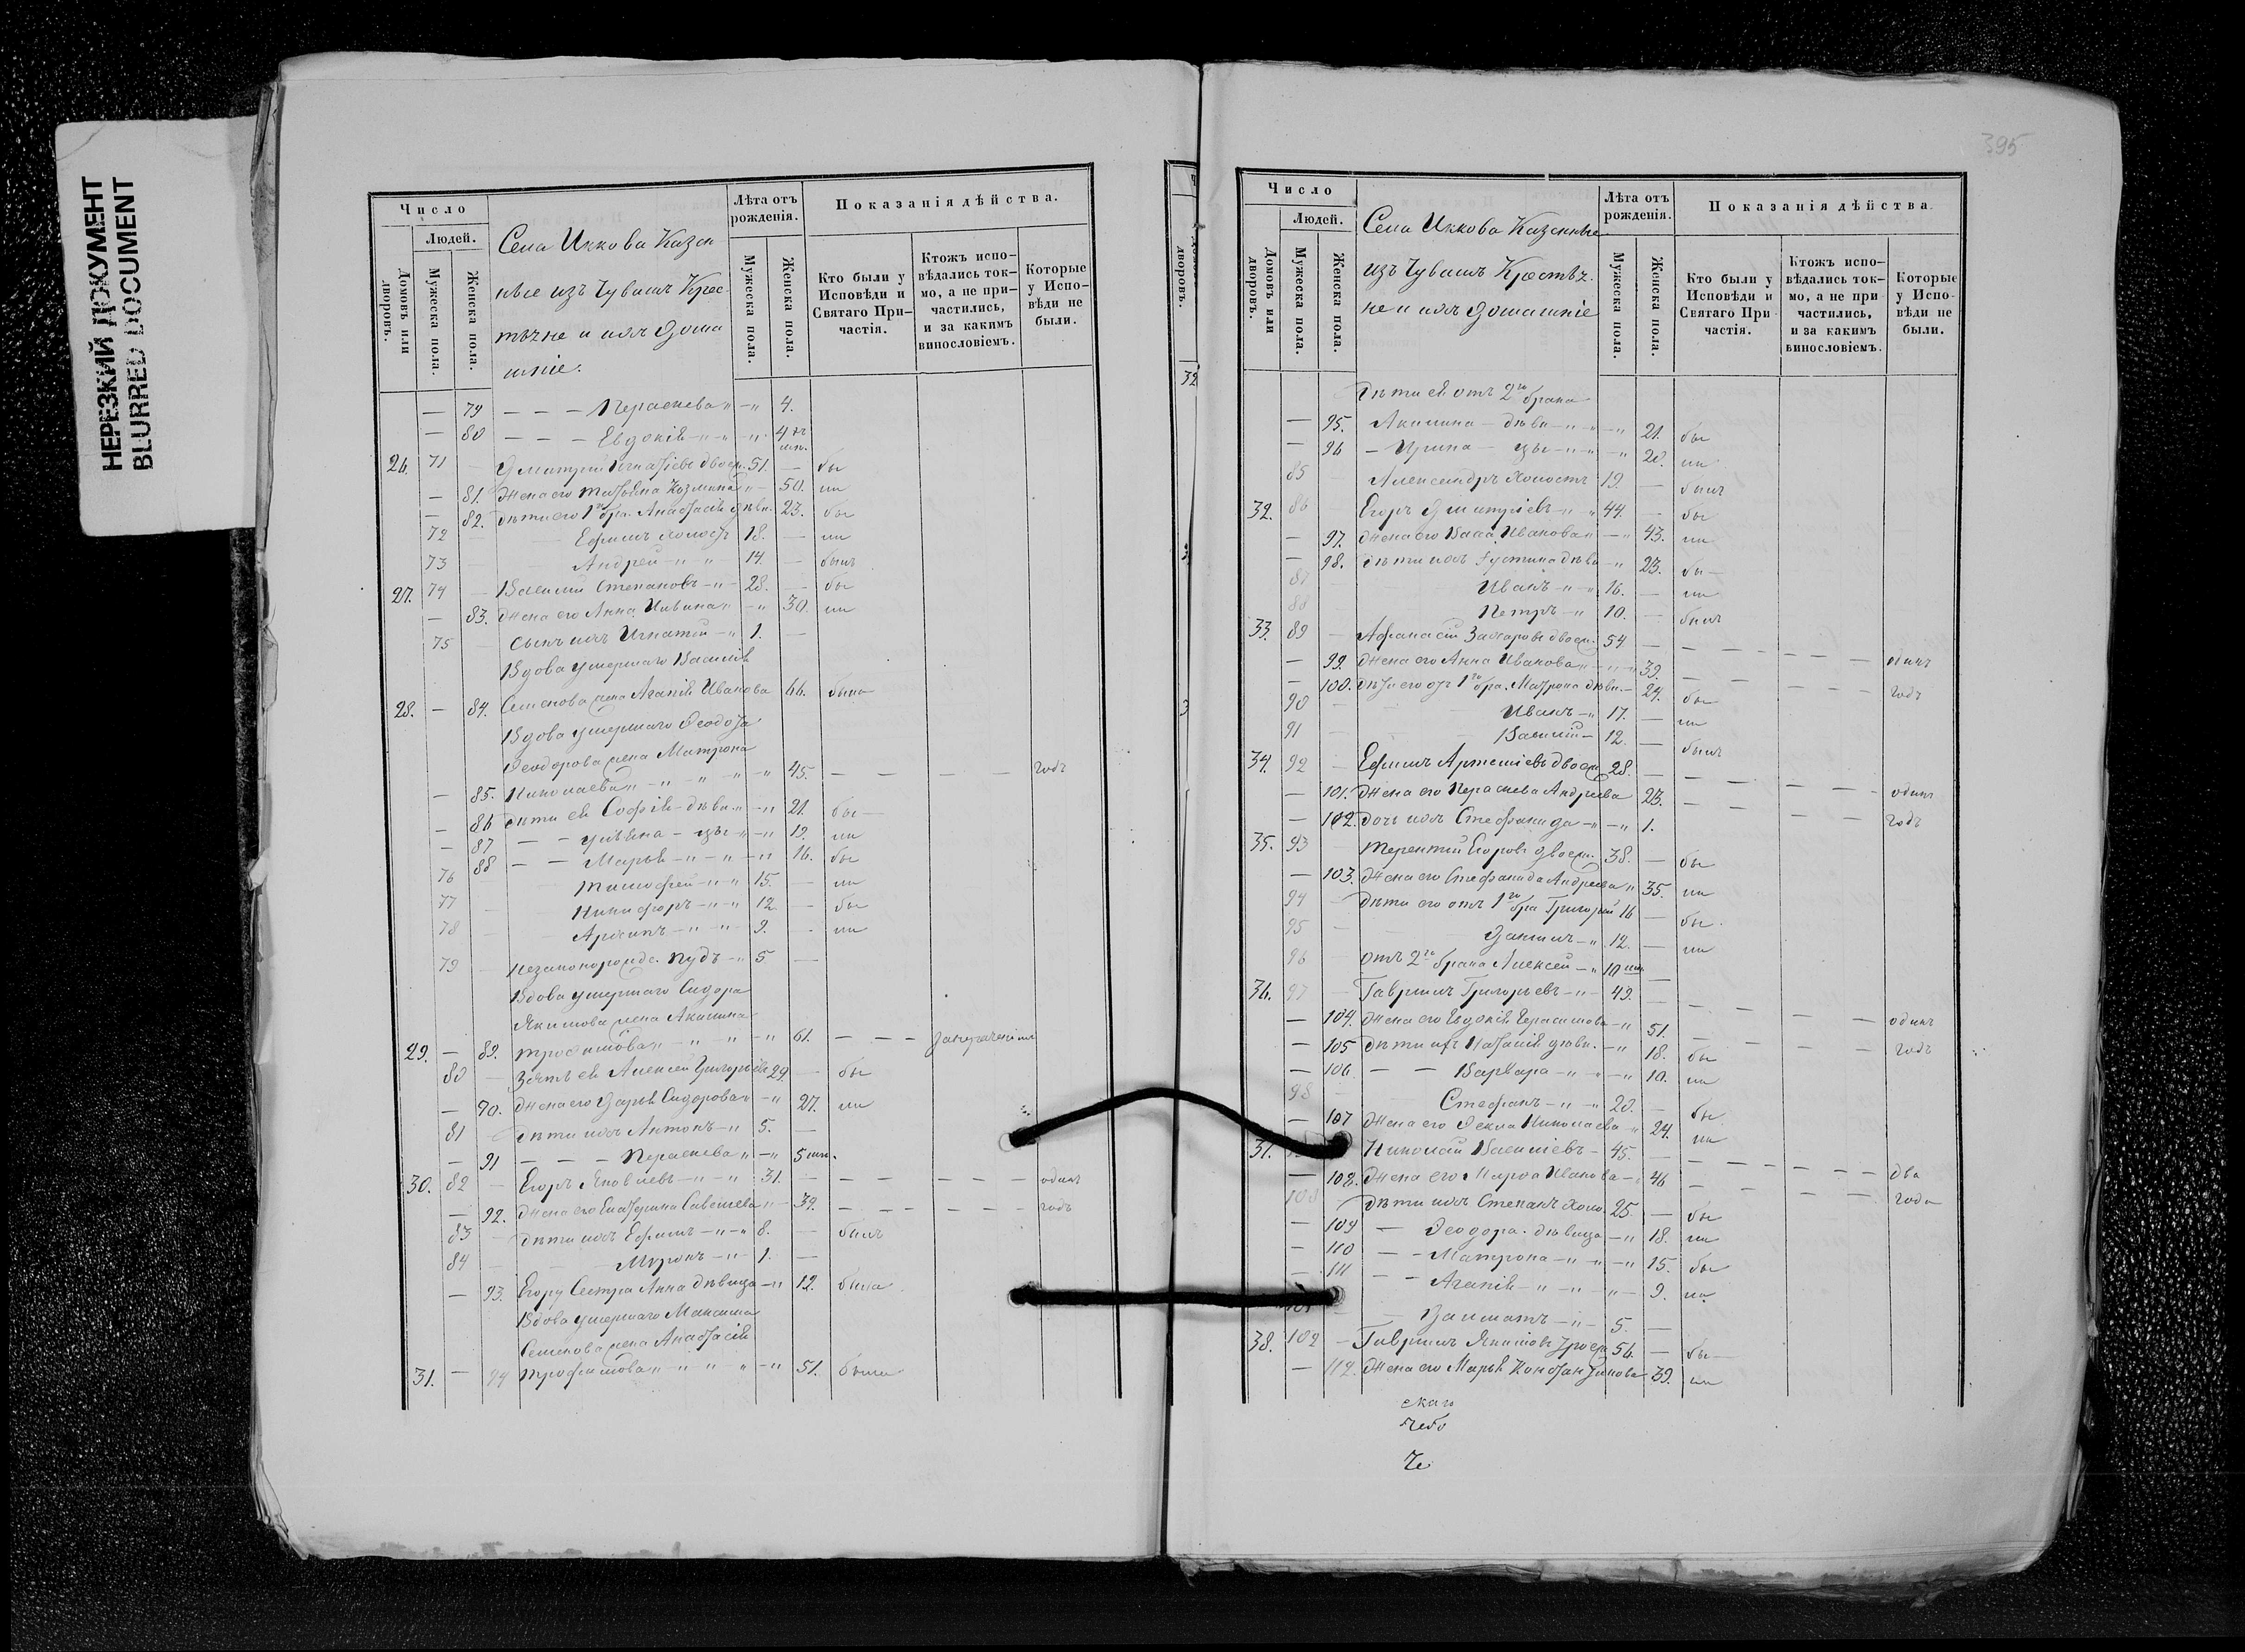 НЕРЕЗКИЙ ДОКУМЕНТ
BLURRED DOCUMENT
Число
Людей.
Домовъ или дворовъ.
Мужеска пола.
Женска пола.
Села Иккова Казен
ные изъ Чувашъ Крес
тьяне и ихъ Дома
шніе.
Лѣта отъ рожденія.
Мужеска пола.
Женска пола.
Показанія дѣйства.
Кто были у Исповѣди и Святаго Причастія.
Ктожъ исповѣдались токмо, а не причастились, и за какимъ винословіемъ.
Которые у Исповѣди не были.
— 79 — — — Параскева " — " 4.
— 80 — — — Евдокія — " — " 4
26. 71 — Дмитрий Игнатіевъ двоеж. 51. — бы
— 81. Жена его Татьяна Козмина " — 50. ли
— 82. Дѣти его 1го бра. Анастасія дѣви. 23. бы
72 Ефимъ холостъ 18. — ли
73 Андрей — " " 14. — былъ
27. 74 — Василий Степановъ — " — 28. — бы
— 83. Жена его Анна Ивана " — " 30. ли
75 Сынъ ихъ Игнатій — " 1. —
Вдова умершаго Василія
28. — 84. Семенова жена Агапія Иванова 66. была
Вдова умершаго Ѳеодота
Ѳеодорова жена Матрона
— 85. Николаева — " — " — " — " 45. — — — — годъ
— 86 Дѣти ея Софія — дѣви. — " — " 21. бы —
— 87 — — Ульяна — цы — " — " 19. ли
88 — — Марья — " — " — " 16. бы
76 Тимофей — " — " 15. — ли
77 Никифоръ — " — " 12. — бы
78 Архипъ — " — " 9. — ли
79 — Незаконорожде. Пудъ — " 5. —
Вдова умершаго Сидора
Якимова жена Акилина
29. — 89. Трофимова " — " — " — " 61. — — —
80 — Зять ея Алексей Григорьевъ 29. — бы
— 90. Жена его Дарья Сидорова " — " 27. ли
81 — Дѣти ихъ Антонъ — " 5. —
— 91 — — — Параскева " — " 5 мѣ.
30. 82 — Егоръ Яковлевъ — " — " 31. — — — — — одинъ
— 92. Жена его Екатерина Савельева " — 39. — — — — — годъ
83 — Дѣти ихъ Ефимъ — " — " 8. — былъ
84 — — Миронъ — " — 1. —
— 93. Егору Сестра Анна дѣвица — " 12. была
Вдова умершаго Максима
Семенова жена Анастасія
31. — 94 Трофимова " — " — " — " 51. была
395
Число
Людей.
Домовъ или дворовъ.
Мужеска пола.
Женска пола.
Села Иккова Казенные
изъ Чувашъ Крестья
не и ихъ Домашніе
Лѣта отъ рожденія.
Мужеска пола.
Женска пола.
Показанія дѣйства
Кто были у Исповѣди и Святаго Причастія.
Ктожъ исповѣдались токмо, а не причастились, и за какимъ винословіемъ.
Которые у Исповѣди не были.
Дѣти ея отъ 2го брака
— 95. Акилина — дѣви — " — " 21. бы
— 96 — Ирина — цы — " — " 20. ли
85 Александръ холостъ 19. — былъ
32. 86 — Егоръ Дмитріевъ — " 44. — бы
— 97. Жена его Васса Иванова " — " 43. ли
— 98. Дѣти ихъ Устина дѣви — " 23. бы —
87 Иванъ — " — 16. — ли
88 Петръ — " 10. — былъ
33. 89 — Афанасій Захаровъ двоеж. 54. — — — — — одинъ
— 99. Жена его Анна Иванова " — " 39. — — — — годъ
— 100. Дѣти его отъ 1го бра. Матрона дѣви. — 24. бы
90 — Иванъ — " 17. — ли
91 — Василій — 12. — былъ
34. 92 — Ефимъ Артеміевъ двоеж 28. — — — — — одинъ
— 101. Жена его Параскева Андреева 23. — — — — годъ
— 102. Дочь ихъ Стефанида — " — " 1.
35. 93 Терентий Егоровъ двоеж. 38. — бы
— 103. Жена его Стефанида Андреева " 35. ли
94 — Дѣти его отъ 1го бра Григорий 16 — бы
95 — Данилъ — " 12. — ли
96 отъ 2го брака Алексей — " 10 мѣ —
36. 97 — Гаврилъ Григорьевъ — " — 49. — — — — — одинъ
— 104. Жена его Евдокія Герасимова — " 51. — — — — годъ
— 105 Дѣти ихъ Наталія дѣви. — " 18. бы
— 106 — — Варвара — " — " — " 10. ли
98 Стефанъ — " — " 20. — бы
— 107 Жена его Ѳекла Николаева " 24. ли
37. Николай Василіевъ — 45. — — — — — — два
— 108. Жена его Марѳа Иванова — " 46 — — — — года
100 Дѣти ихъ Степанъ холо. 25. — бы
— 109 — Ѳеодора дѣвица — " 18. ли
— 110 — — Матрона — " — " — " 15. бы
— 111 — — Агапія — " — " " — 9. ли
101 — — " — 5. —
38. 102 — Гаврилъ Якимовъ троеж 56. — бы —
— 112. Жена его Марья Константинова 39. ли
скаго
Чебо
Че